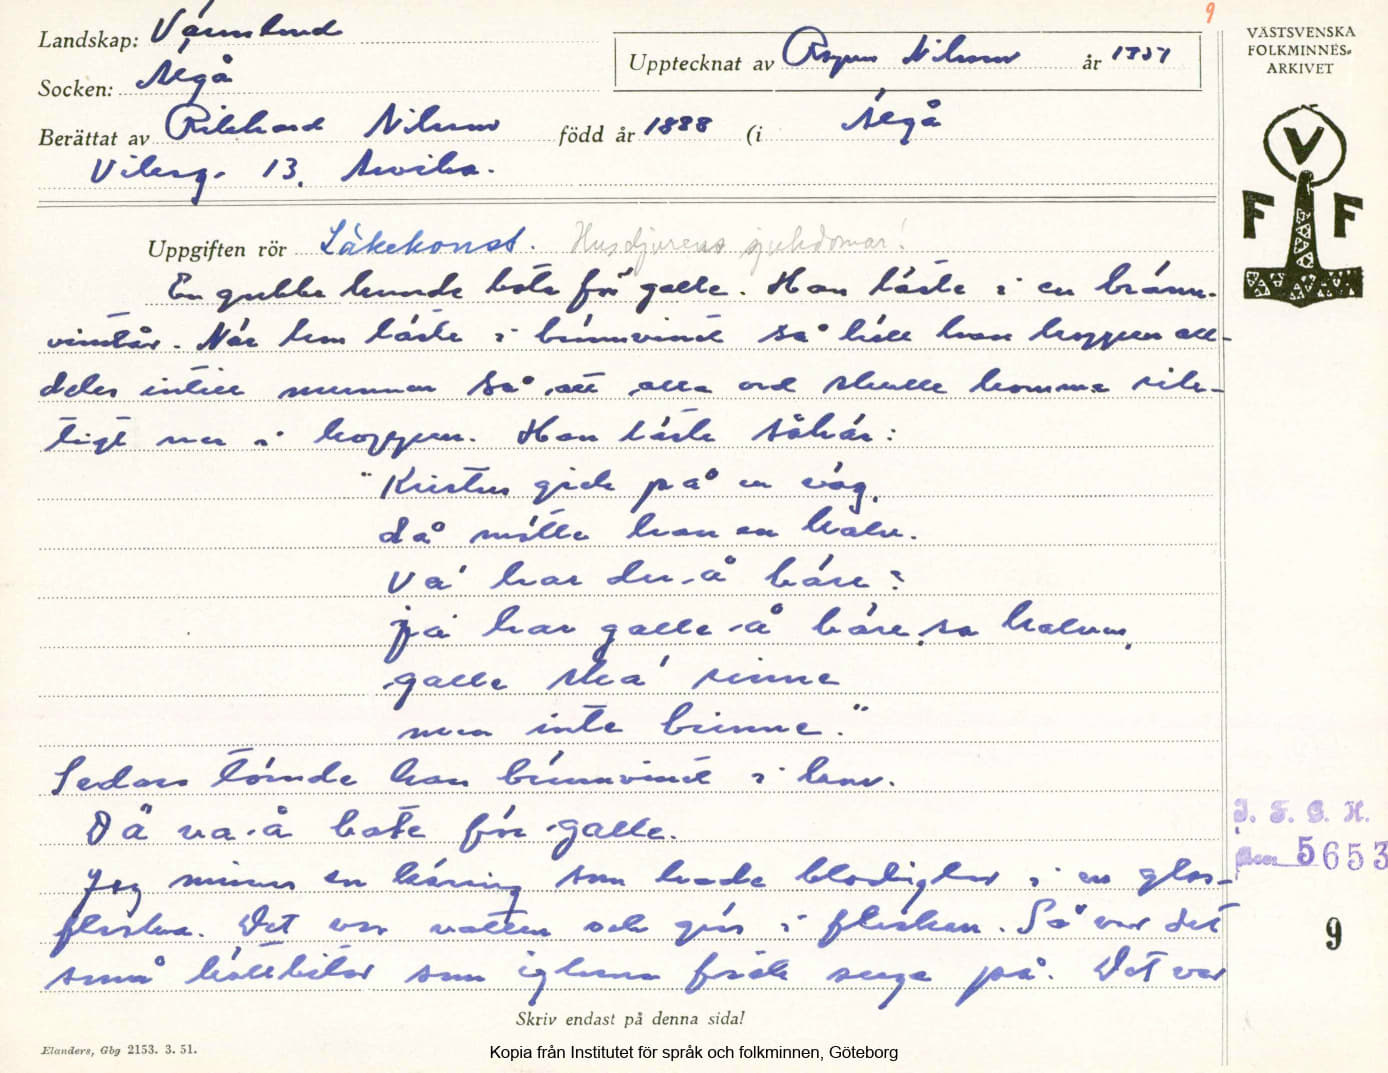 9
Landskap: Värmland
Socken: Älgå
Upptecknat av Ragnar Nilsson år 1957
Berättat av Rikhard Nilsson född år 1888 (i Älgå
Vikeng. 13, Arvika.
VÄSTSVENSKA
FOLKMINNES-
ARKIVET
V
F F
Uppgiften rör Läkekonst. Husdjurens sjukdomar!
En gubbe kunde bota för galle. Han läste i en bränn-
vinstår. När han läste i brännvinet så höll han koppen all-
deles intill munnen så att alla ord skulle komma rik-
tigt ner i koppen. Han läste såhär:
"Kristus gick på en väg,
då mötte han en kalv.
Va' har du å bära?
ja har galle å bära, sa kalven,
galle ska' rinne
men inte brinne."
Sedan tömde han brännvinet i kon.
Dä va å bota för galle.
Jag minns en käring som hade blodiglar i en glas-
flaska. Det var vatten och gräs i flaskan. Så var det
små köttbitar som iglarna fick suga på. Det var
I. F. G. H.
5653
9
Skriv endast på denna sida!
Elanders, Gbg 2153. 3. 51.
Kopia från Institutet för språk och folkminnen, Göteborg